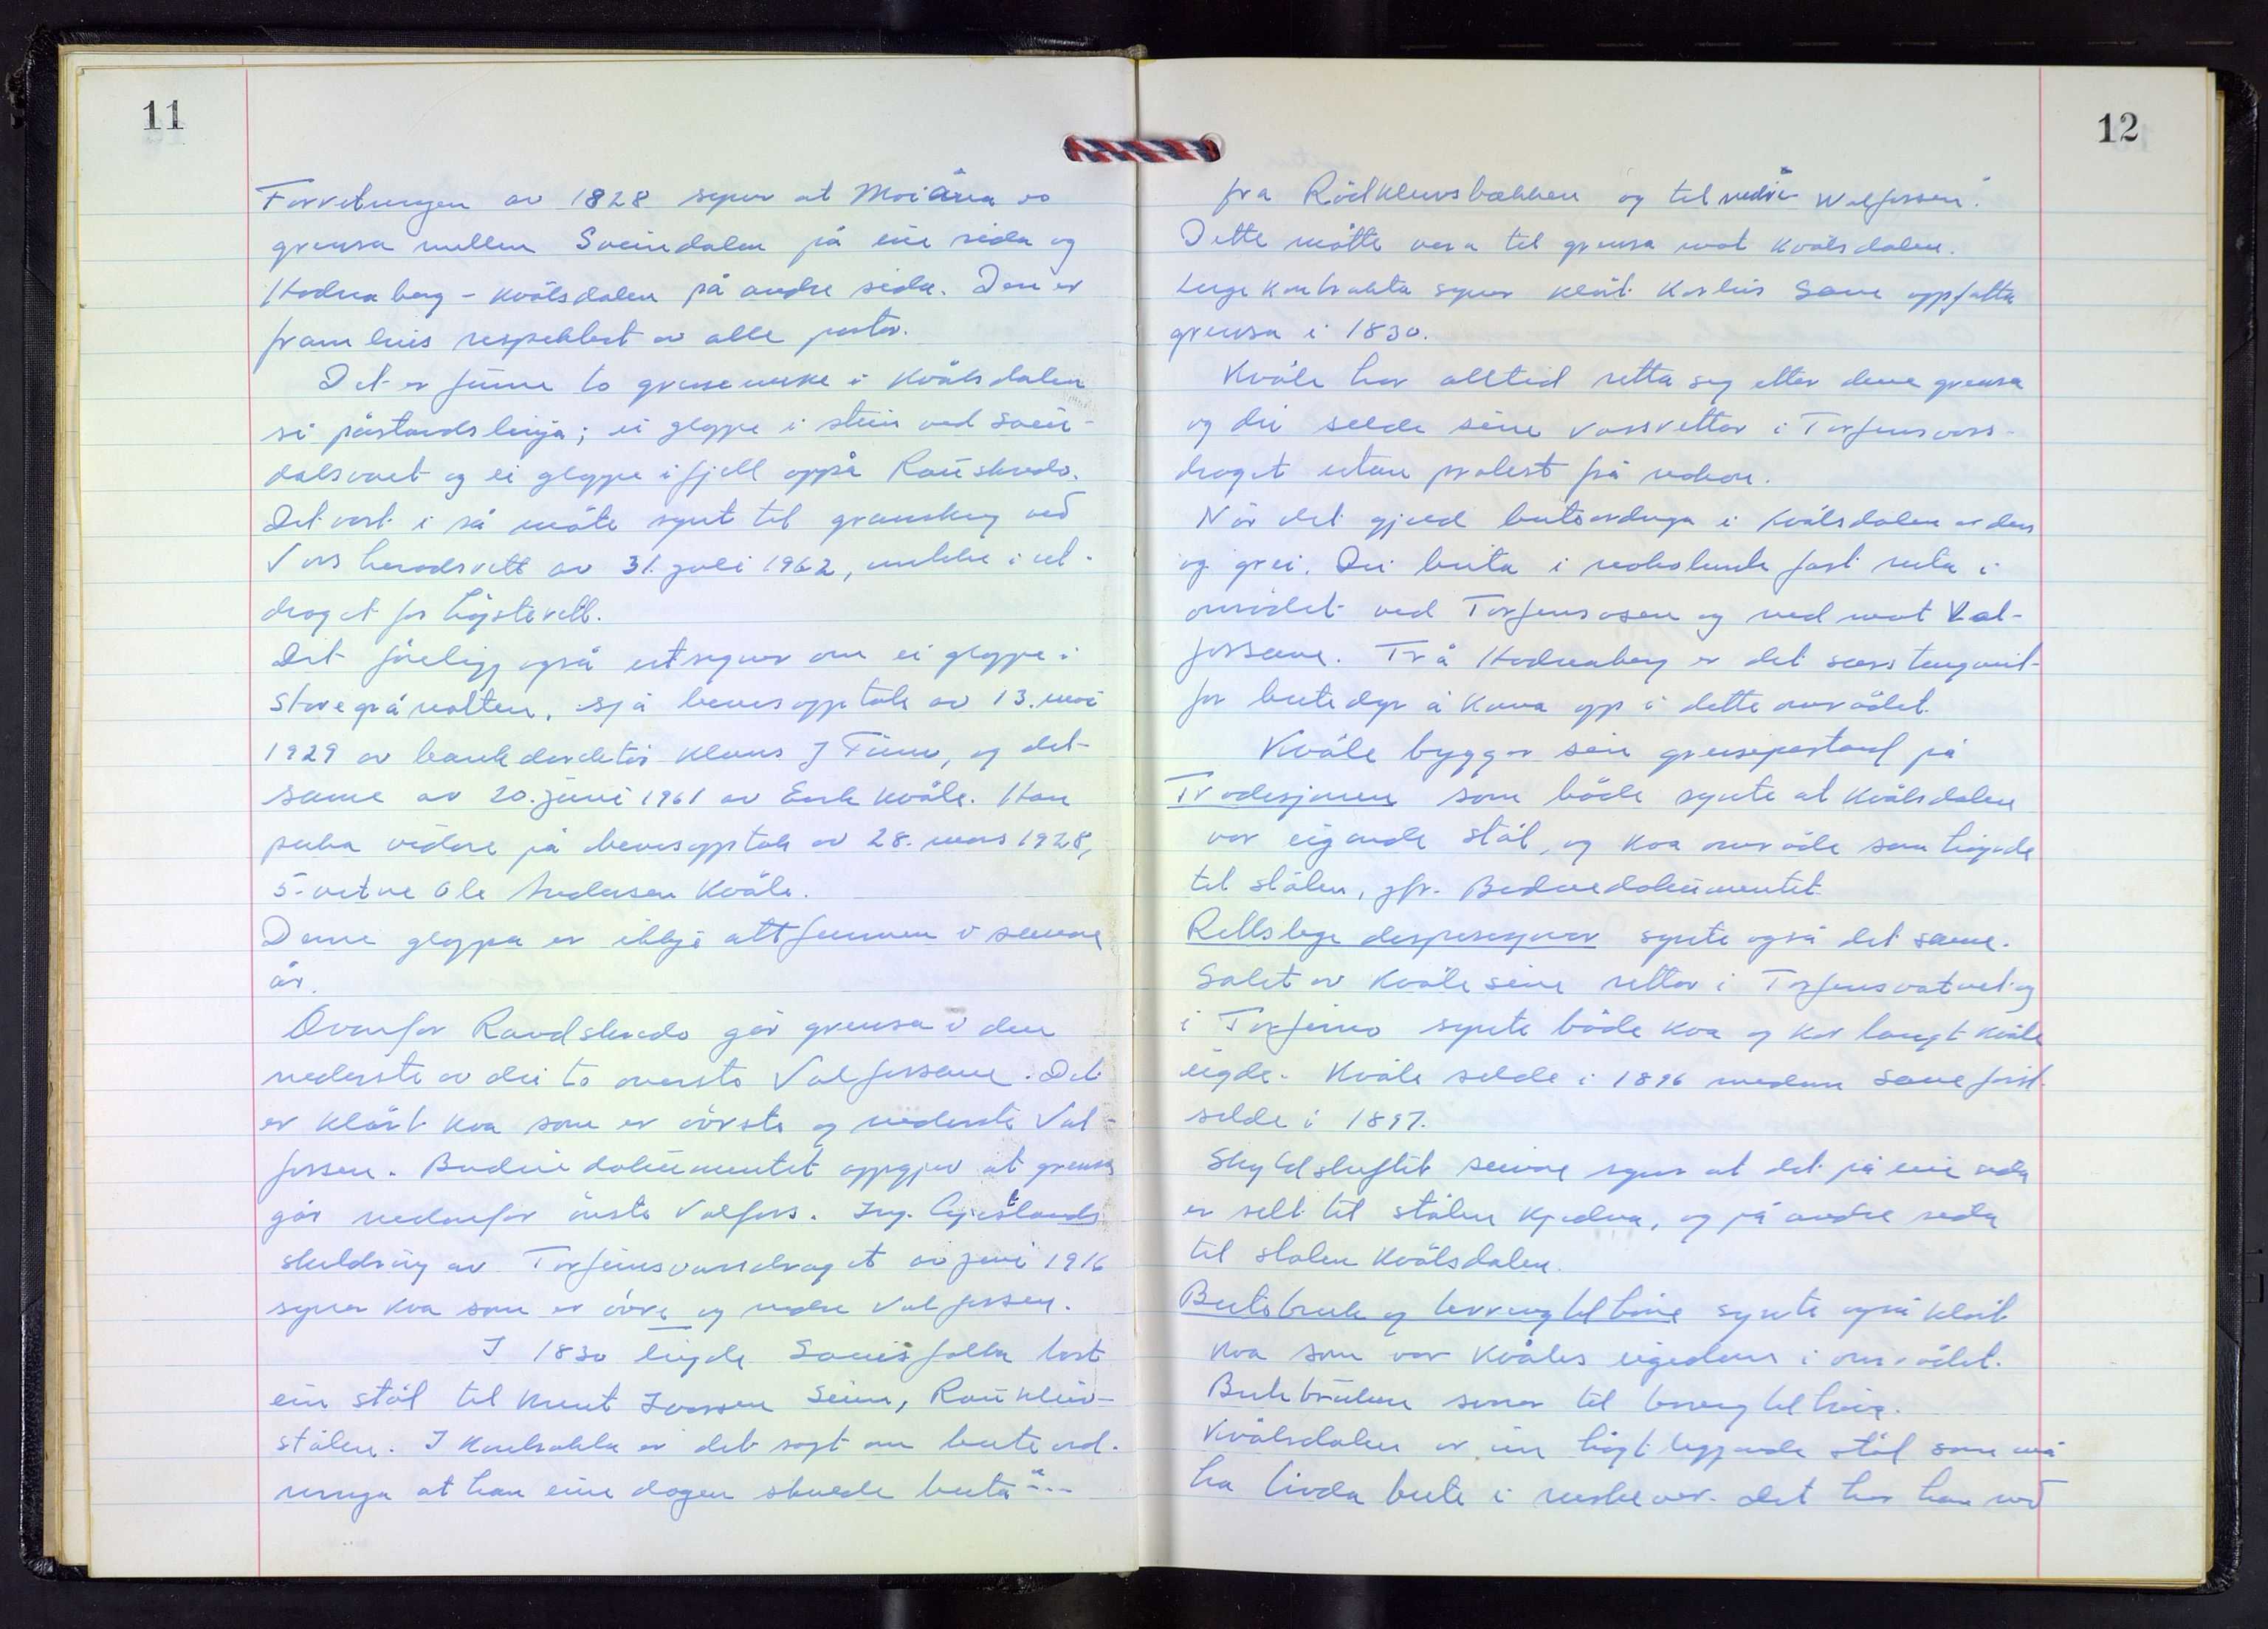 11
Forretningen av 1828 syner at Moiåna er
grensa mellem Sveindalen på eine sida og
Hodnaberg - Kvålsdalen på andre sida. Den er
framleis respektert av alle partar.
Det er funne to grensemerke i Kvålsdalen
si påstandslinja; ei gloppe i stein ved Svein-
dalsvnet og ei gloppe i fjell oppå Rauskredo.
Det vart i så måte synt til gransking ved
Voss heradsrett av 31. juli 1962, mellom i ut-
draget for Högsterett.
Det föreligg også utsegner om ei gloppe i
Storegrånolten, sjå bevisopptak av 13. mai
1929 av bankdirektör Klaus J Finne, og det
same av 20. juni 1961 av Eirik Kvåle. Han
peika vidare på bevisopptak av 28. mars 1928,
5. vitne Ole Andersen Kvåle.
Denne gloppa er ikkje attfunnen i seinare
år.
Ovanfor Raudskredo går grensa i den
nederste av dei to överste Valfossane. Det
er klårt kva som er överste og nederste Val-
fossen. Budeiedokumentet oppgjev at grensa
går nedanfor överste Valfoss. Ing.
skildring av Torfinnsvassdraget av juni 1916
syner kva som er övre og nedre Valfossen.
I 1830 leigde Saueisfolka bort
ein stöl til Knut Ivarsen Seim, Raukleiv-
stölen. I kontrakta er det sagt om beiteord-
ninga at han eine dagen skulde beita "---
12
fra Rödklevsbækken og til nedre Walfossen".
Dette måtte vera til grensa mot Kvålsdalen.
Leigekontrakta syner klårt korleis Saue oppfatta
grensa i 1830.
Kvåle har alltid retta seg etter denne grensa
og dei selde sine vassrettar i Torfinnsvass-
draget utan protest frå nokon.
Når det gjeld beiteordninga i Kvålsdalen er den
og grei. Dei beita i vekslande fast ruta i
området ved Torfinnsosen og ned mot Val-
fossane. Frå Hodnaberg er det særs tungvint
for beitedyr å koma opp i dette området.
Kvåle bygger sin grensepåstand på
Tradisjonen som både synte at Kvålsdalen
var eigande stöl, og kva område som höyrde
til stölen, jfr. Budeiedokumentet
Rettslege disposisjonar synte også det same.
Salet av Kvåle sine rettar i Torfinnsvatnet og
i Torfinno synte både kva og kor langt Kvåle
eigde. Kvåle selde i 1896 medan Saue först
selde i 1897.
Skyldskiftet seinare syner at det på eine sida
er selt til stölen Kjedna, og på andre sida
til stölen Kvålsdalen.
Beitebruk og terrengtilhöve synte også klårt
kva som var Kvåles eigedom i området.
Beitebruken svarar til terrengtilhöva.
Kvålsdalen er ein högt liggjande stöl som må
ha livda beite i ruskever. Det har han ved